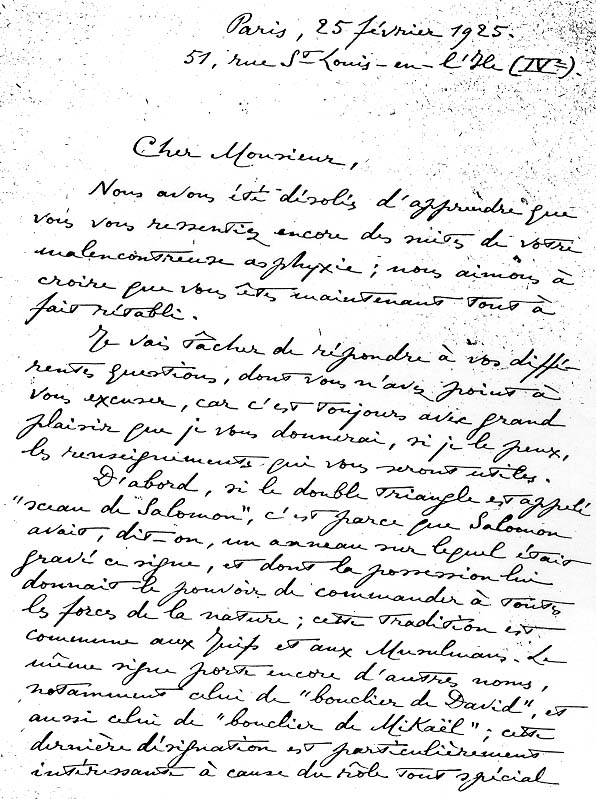 Paris, 25 février 1925.
51, rue St Louis-en-l'Ile (IVe).
Cher Monsieur,
Nous avons été désolés d'apprendre que
vous vous ressentiez encore des suites de votre
malencontreuse asphyxie ; nous aimons à
croire que vous êtes maintenant tout à
fait rétabli.
Je vais tâcher de répondre à vos diffé-
rentes questions, dont vous n'avez point à
vous excuser, car c'est toujours avec grand
plaisir que je vous donnerai, si je le peux,
les renseignements qui vous seront utiles.
D'abord, si le double triangle est appelé
"sceau de Salomon", c'est parce que Salomon
avait, dit-on, un anneau sur lequel était
gravé ce signe, et dont la possession lui
donnait le pouvoir de commander à toutes
les forces de la nature ; cette tradition est
commune aux Juifs et aux Musulmans. Le
même signe porte encore d'autres noms,
notamment celui de "bouclier de David", et
aussi celui de "bouclier de Mikaël" ; cette
dernière désignation est particulièrement
intéressante à cause du rôle tout spécial